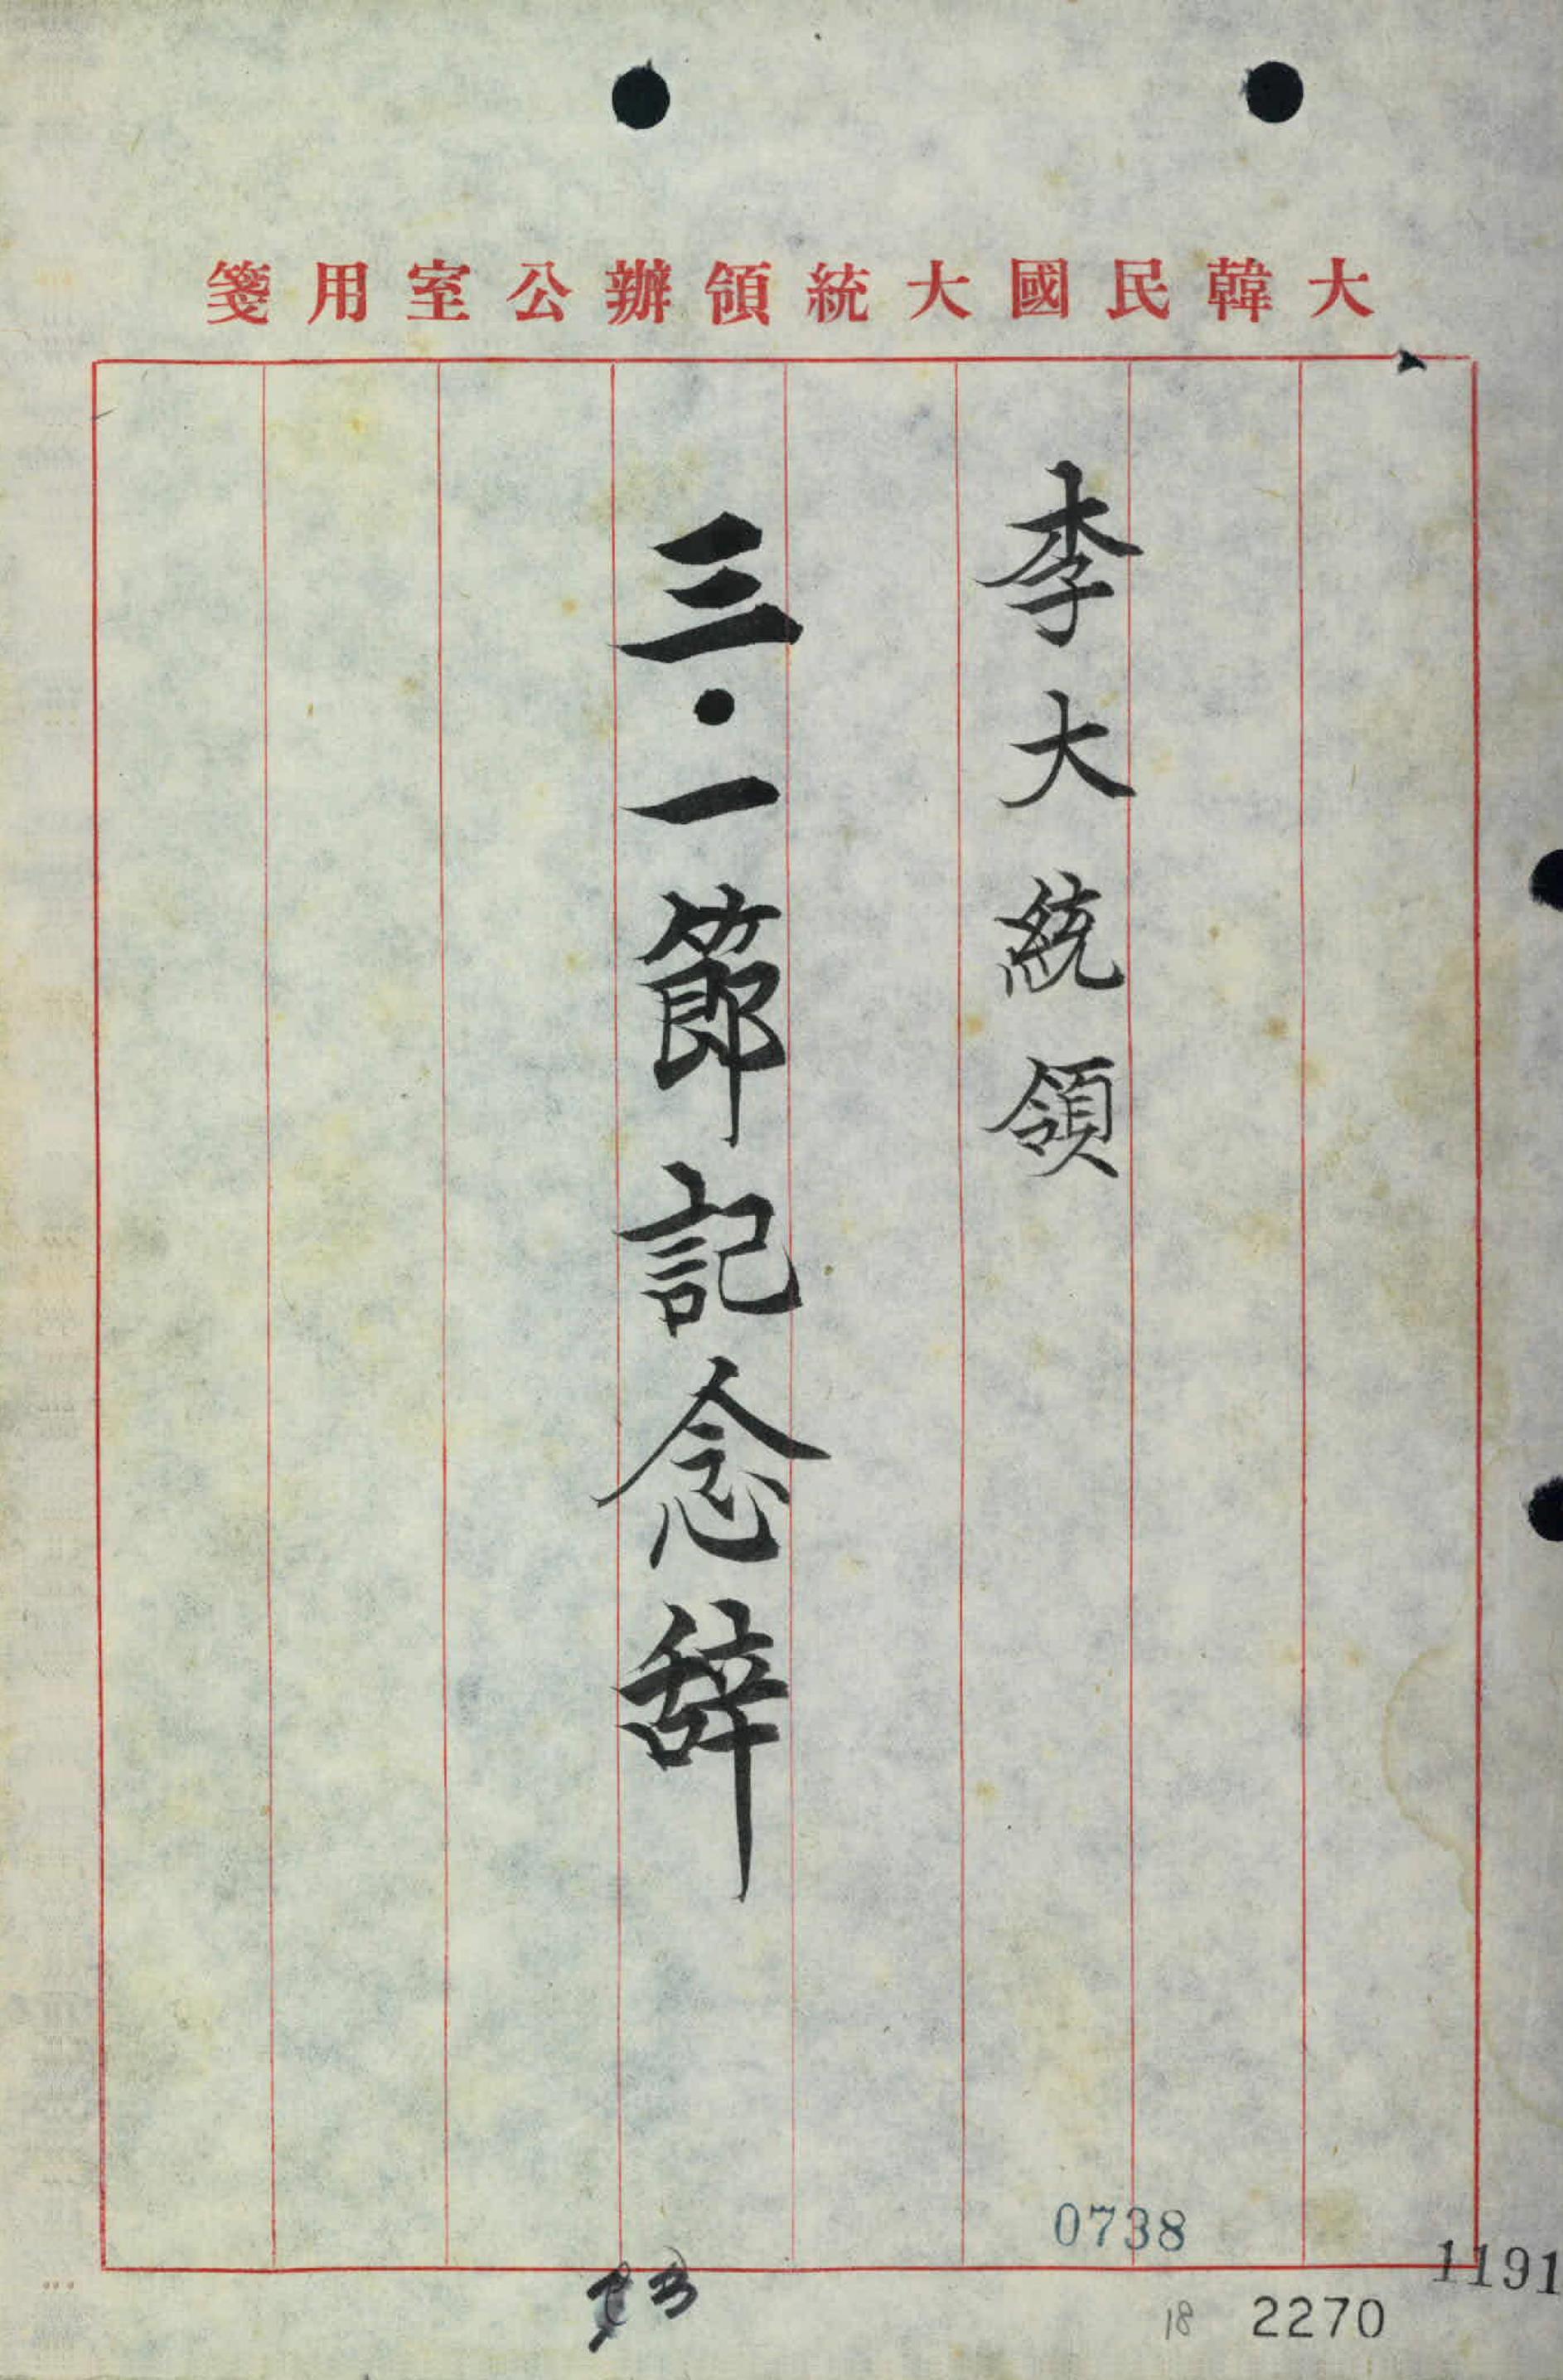 大韓民國大統領辦公室用箋
李大統領
三·一節記念辭
0738
1191
18 2270